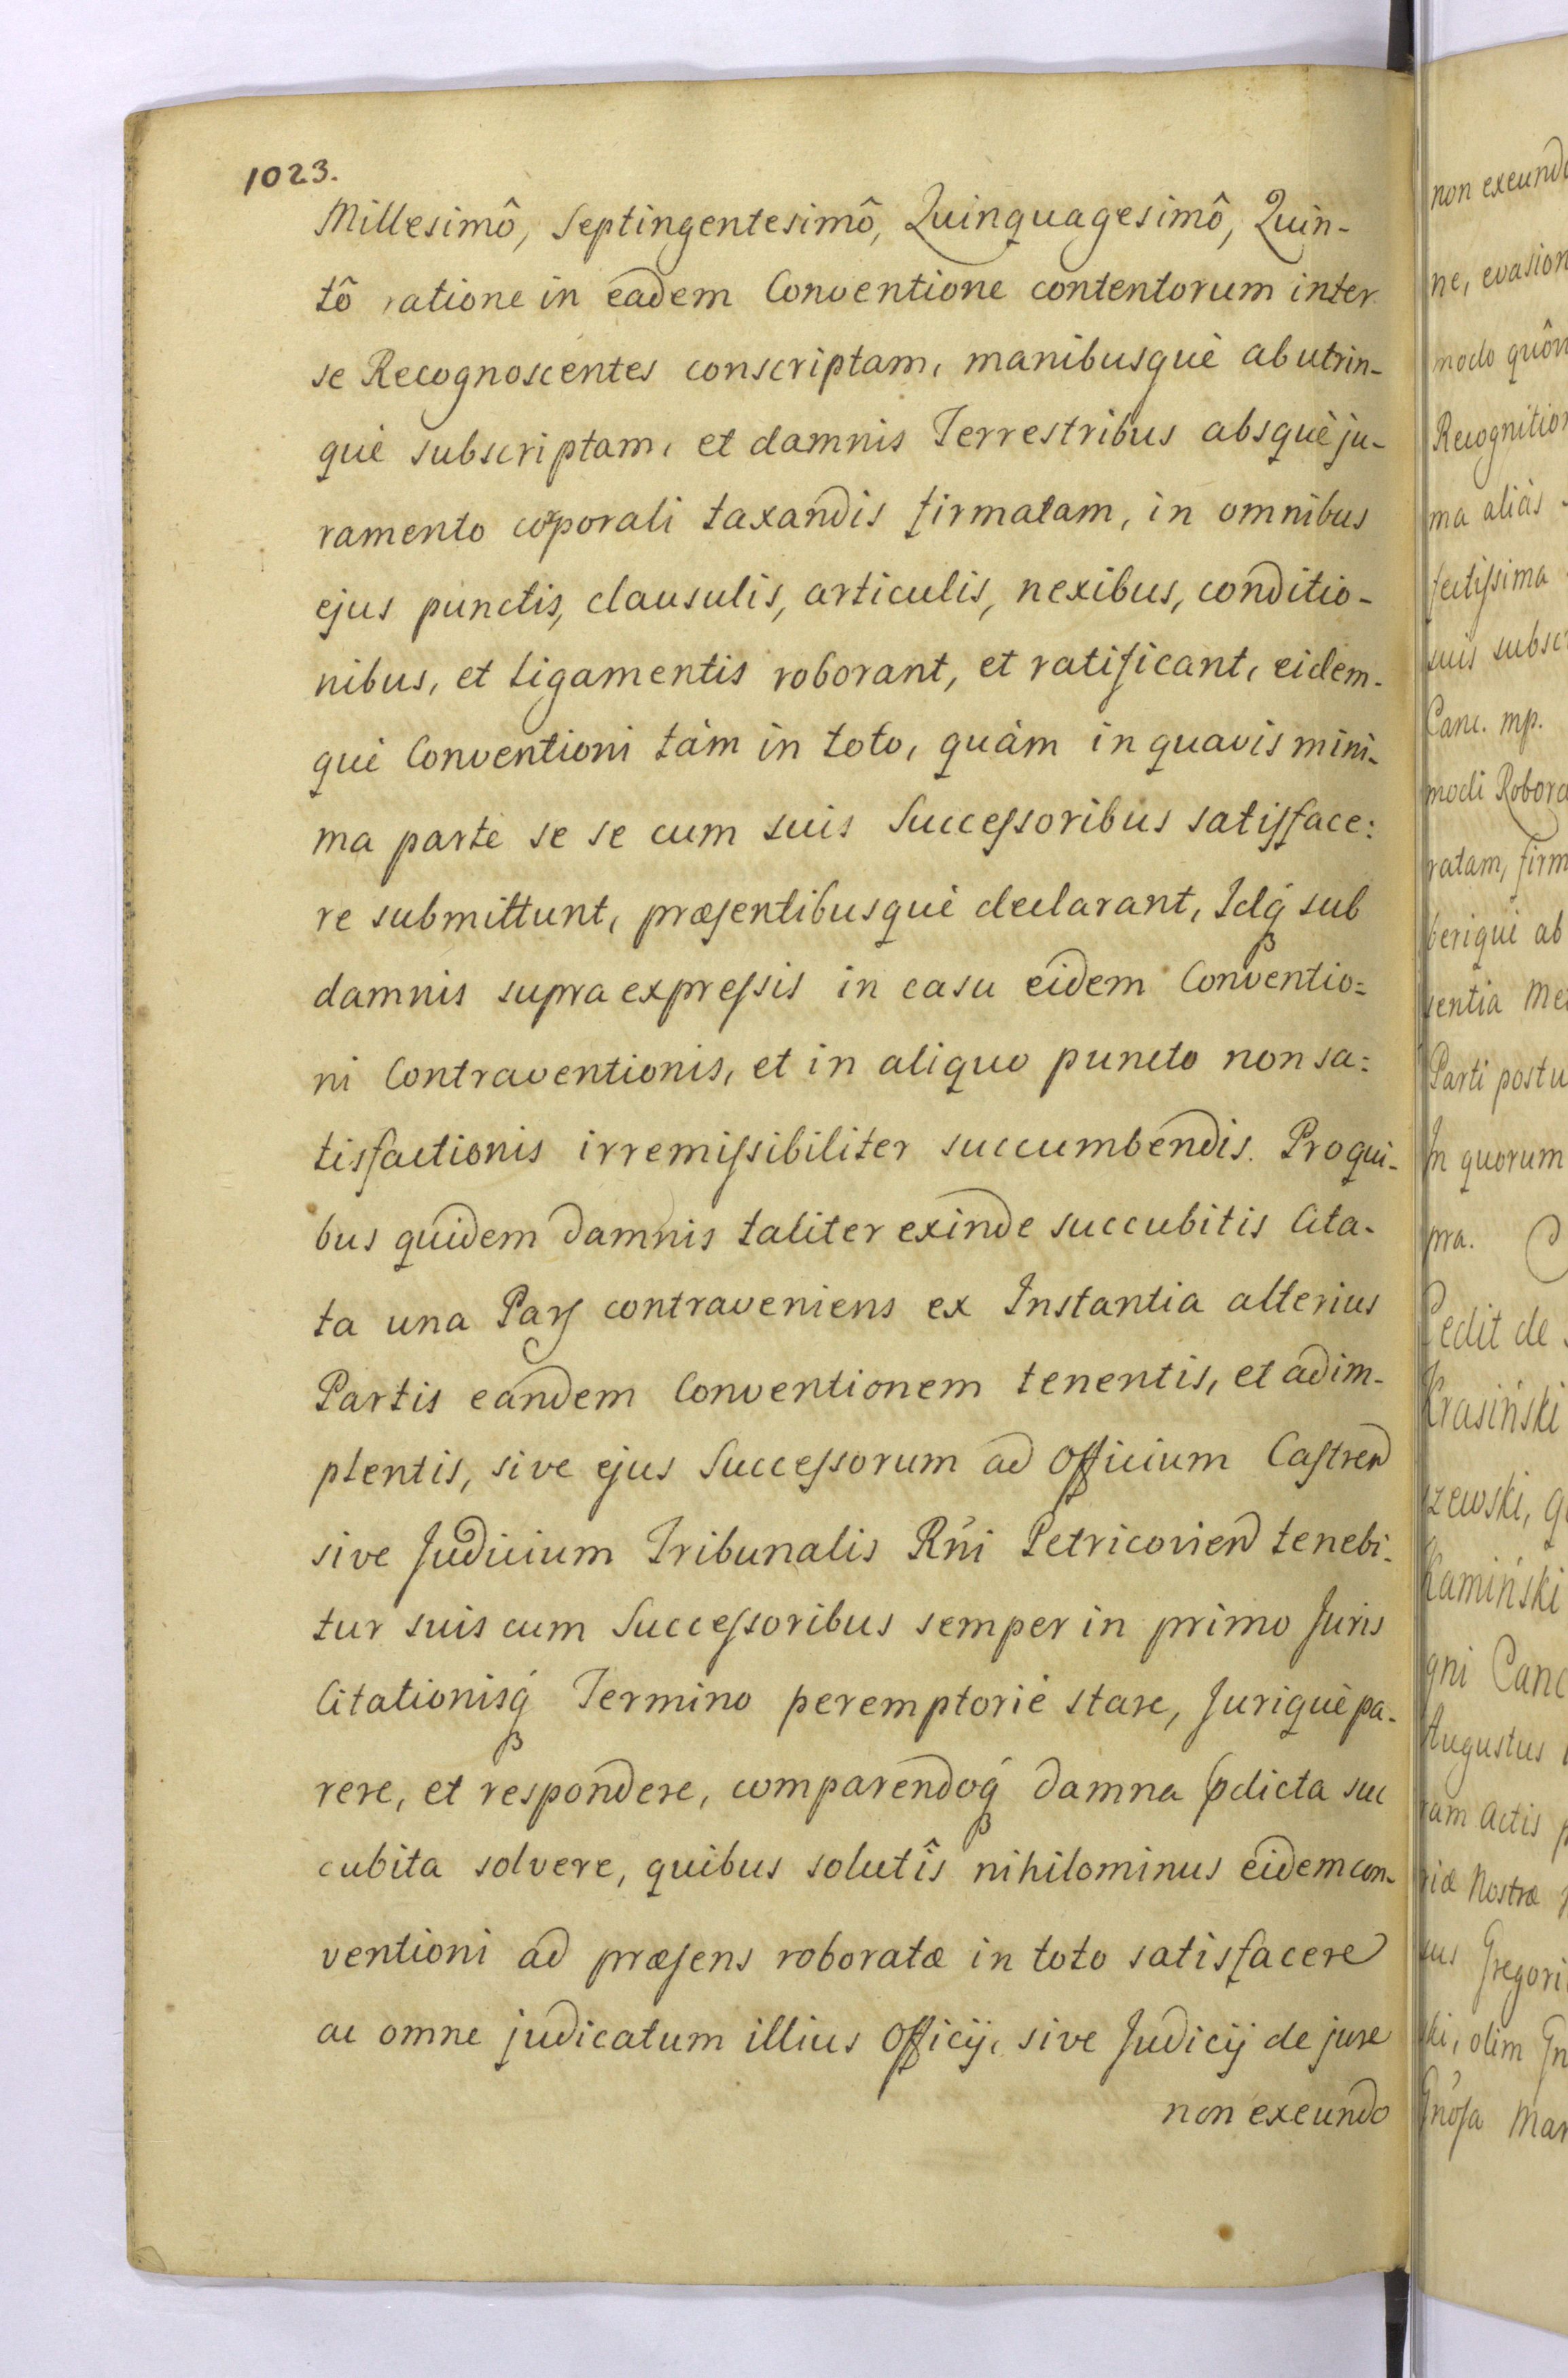 1023.
Millesimô, Septingentesimô, Quinquagesimô, Quin-
tô ratione in eadem Conventione contentorum inter
se Recognoscentes conscriptam, manibusquè ab utrin-
què subscriptam, et damnis Terrestribus absquè ju-
ramento corporali taxandis firmatam, in omnibus
ejus punctis, clausulis, articulis, nexibus, conditio-
nibus, et ligamentis roborant, et ratificant, eidem-
què Conventioni tàm in toto, quàm in quavis mini-
ma parte se se cum suis Succeſsoribus satisface:
re submittunt, præsentibusquè declarant, Idq́ sub
damnis supra expreſsis in casu eidem Conventio=
ni Contraventionis, et in aliquo puncto non sa:
tisfactionis irremiſsibiliter succumbendis. Pro qui-
bus quidem damnis taliter exinde succubitis Cita-
ta una Pars contraveniens ex Instantia alterius
Partis eandem Conventionem tenentis, et adim-
plentis, sive ejus Succeſsorum ad Officium Castren
sive Judicium Tribunalis Rńi Petricovien tenebi-
tur suis cum Succeſsoribus semper in primo Juris
Citationisq́ Termino peremptoriè stare, Juriquè pa-
rere, et respondere, comparendoq́ damna pdicta suc
cubita solvere, quibus solutîs nihilominus eidem con-
ventioni ad præsens roboratæ in toto satisfacere
ac omne judicatum illius Officij, sive Judicij de jure
non exeundo
non exeundo
ne, evasion
modo quôv
Recognition
ma aliàs
fectiſsima
suis subsc
Canc. mp.
modi Robora
ratam, firm
beriquè ab
sentia Me
Parti postu
In quorum
pra.
Cedit de
Krasiński
szewski, q
Kamiński
gni Canc
Augustus
ram Actis p
riæ Nostræ
sus Gregori
ski, olim Gn
Gńosa Mar